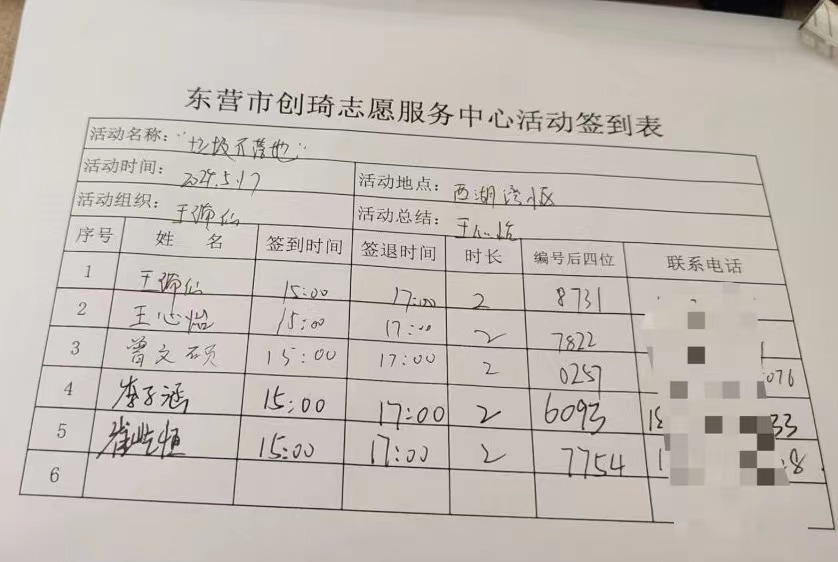 东营市创琦志愿服务中心活动签到表
活动名称："垃圾不落地"
活动时间：2024.5.17 活动地点：西湖湾小区
活动组织：王瑜仙 活动总结：王心怡
序号 姓名 签到时间 签退时间 时长 编号后四位 联系电话
1 王瑜仙 15:00 17:00 2 8731
2 王心怡 15:00 17:00 2 7822
3 曾文硕 15:00 17:00 2 0257 076
4 李子涵 15:00 17:00 2 6093 18 33
5 崔屹恒 15:00 17:00 2 7754 1 8
6